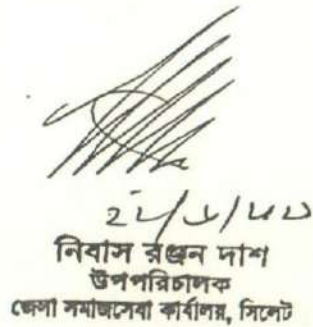 নিবাস রঞ্জন দাশ
উপপরিচালক
জেলা সমাজসেবা কার্যালয়, সিলেট